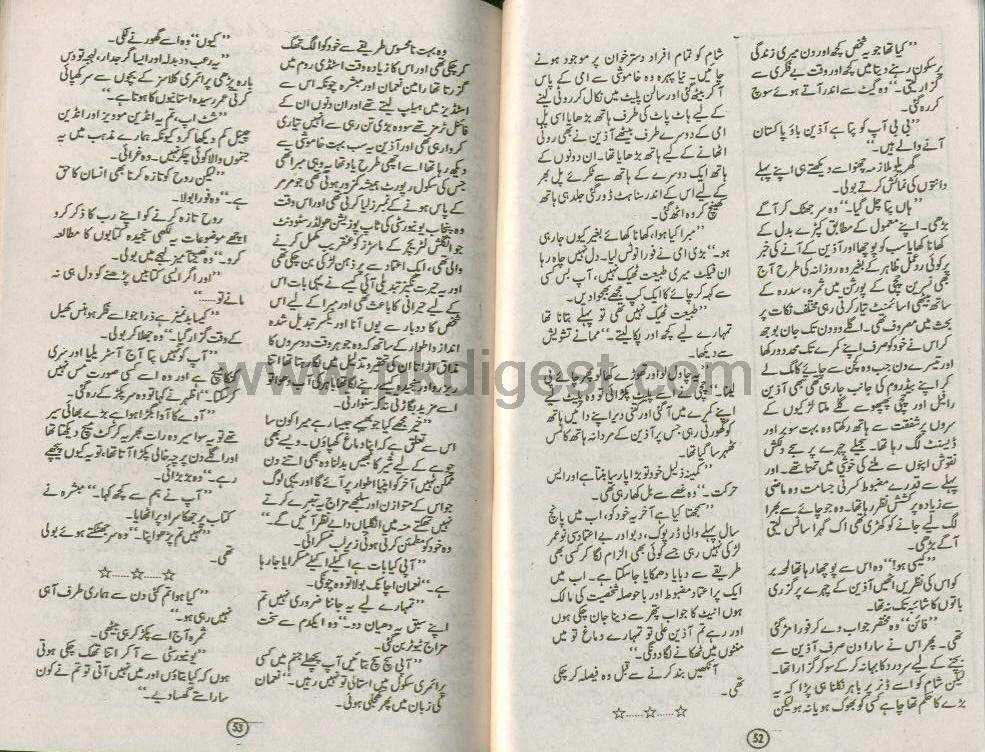 "کیا تھا جو یہ شخص کچھ اور دن میری زندگی
پر سکون رہنے دیتا میں کچھ اور وقت بے فکری سے
گزار لیتی۔" وہ گیٹ سے اندر آتے ہوئے سوچ
کر رہ گئی۔
"بی بی آپ کو پتا ہے آذین باؤ پاکستان
آنے والے ہیں۔"
گھریلو ملازمہ چھنوا سے دیکھتے ہی اپنے پیلے
دانتوں کی نمائش کرتے بولی۔
"ہاں پتا چل گیا۔" وہ سر جھٹک کر آگے
بڑھی۔ اپنے معمول کے مطابق کپڑے بدل کے
کھانا کھایا سب کو پوچھا اور آذین کے آنے کی خبر
پر کوئی ردعمل ظاہر کے بغیر وہ روزانہ کی طرح آج
بھی نسرین چچی کے پورشن میں ثمرہ، سدرہ کے
ساتھ بیٹھی اسائنمنٹ تیار کرتی رہی مختلف نکات پر
بحث میں مصروف تھی۔ اگلے دو دن تک جان بوجھ
کر اس نے خود کو صرف اپنے کمرے تک محدود رکھا
اور تیسرے دن جب وہ کچن سے چائے کا مگ لے
کر اپنے بیڈروم کی جانب جا رہی تھی تبھی آذین
رافیل اور چچی پھپھو سے گلے ملتا لڑکیوں کے
سروں پر شفقت سے ہاتھ رکھتا وہ بہت سوبر اور
ڈیسنٹ لگ رہا تھا۔ سجیلے چہرے پر سجے دلکش
نقوش اپنوں سے ملنے کی خوشی میں تمتما تھے اور
پہلے سے قدرے مضبوط کسرتی جسامت وہ ماضی
سے زیادہ پر کشش نظر آ رہا تھا۔ وہ جو چائے سے بھرا
مگ لیے جانے کو کھڑی تھی اک گہرا سانس لیتی
آگے بڑھی۔
"کیسی ہو؟" وہ اس سے پوچھ رہا تھا لمحہ بھر
کو اس کی نظریں اٹھیں آذین کے چہرے پر گزری
باتوں کا شائبہ تک نہ تھا۔
"فائن" وہ مختصر جواب دے کر فوراً مڑ گئی
تھی۔ پھر اس نے سارا دن صرف آذین سے
بچنے کے لیے سر درد کا بہانہ کر کے سو کر گزارا تھا۔
لیکن شام کو اسے ڈنر پر باہر نکلنا ہی پڑا کہ یہ
بڑے کا حکم تھا چاہے کسی کو بھوک ہو یا نہ ہو لیکن
شام کو تمام افراد دسترخوان پر موجود ہونے
چاہئیں یہ نیا پہرہ وہ خاموشی سے امی کے پاس
آ کر بیٹھ گئی اور سالن پلیٹ میں نکال کر روٹی لینے
کے لیے ہاٹ پاٹ کی طرف ہاتھ بڑھایا اسی پل
امی کے دوسرے طرف بیٹھے آذین نے بھی روٹی
اٹھانے کے لیے ہاتھ بڑھایا تھا۔ ان دونوں کے
ہاتھ ایک دوسرے کے ہاتھ سے ٹکرائے پل بھر
کے لیے اس کے اندر سناہٹ دوڑ گئی جلد ہی ہاتھ
کھینچ کر وہ اٹھ گئی۔
"میرا کیا ہوا، کھانا کھائے بغیر کیوں جا رہی
ہو۔" بڑی امی نے فوراً نوٹس لیا۔ "دل نہیں چاہ رہا
ان فیکٹ میری طبیعت ٹھیک نہیں، آپ بس کسی
سے کہہ کر چائے کا ایک کپ مجھے بھجوا دیں۔"
"طبیعت ٹھیک نہیں تھی تو پہلے بتانا تھا
تمہارے لیے کچھ اور پکا لیتے۔" ممانے تشویش
سے دیکھا۔
"یہ چاول لو اور تھوڑے کھا لو پھر چائے پی
لینا۔" چچی نے اسے پلیٹ پکڑائی تو وہ پلیٹ لیے
اپنے کمرے میں آ گئی اور کتنی دیر اپنے دائیں ہاتھ
کو گھورتی رہی جس پر آذین کے مردانہ ہاتھ کا لمس
ٹھہر سا گیا تھا۔
"کمینہ ذلیل خود تو بڑا پارسا بنتا ہے اور ایسی
حرکت۔" وہ غصے سے بل کھا رہی تھی۔
"سمجھتا کیا ہے آخر یہ خود کو، اب میں پانچ
سال پہلے والی ڈرپوک، دبو اور بے اعتمادی نو عمر
لڑکی نہیں رہی جسے کوئی بھی الزام لگا کر کسی بھی
طریقے سے دبایا دھمکایا جا سکتا ہے۔ اب میں
ایک پراعتماد مضبوط اور باحوصلہ شخصیت کی مالک
ہوں اینٹ کا جواب پتھر سے دینا جان چکی ہوں
اور رہے تم آذین علی تو تمہارے دماغ تو میں
منٹوں میں ٹھکانے لگا دوں گی۔"
آنکھیں بند کرنے سے قبل وہ فیصلہ کر چکی
تھی۔
☆......☆......☆
52
وہ بہت نامحسوس طریقے سے خود کو الگ تھلگ
کر چکی تھی اور اس کا زیادہ وقت اسٹڈی روم میں
گزرتا تھا رامین نعمان اور مبشرہ چونکہ اس سے
اسٹڈیز میں ہیلپ لیتے تھے اور ان دونوں ان کے
فائنل ٹرمز تھے سو وہ بڑی تن رہی سے انہیں تیاری
کروا رہی تھی اور آذین یہ سب بہت خاموشی سے
دیکھ رہا تھا اسے اچھی طرح یاد تھا یہ وہی میرا تھی
جس کی سکول رپورٹ ہمیشہ کمزور ہوتی تھی جو مر مر
کے پاس ہونے کے نمبرز لیا کرتی تھی اور اس وقت
وہ پنجاب یونیورسٹی کی ٹاپ پوزیشن ہولڈر سٹوڈنٹ
جو انگلش لٹریچر کے ماسٹرز کو عنقریب مکمل کرنے
والی تھی، ایک اعتماد سے پر ذہین لڑکی بن چکی تھی
اور یہ حیرت انگیز تبدیلی آئی کیسے نے یہی بات اس
کے لیے حیرانی کا باعث تھی اور میرا کے لیے اس
شخص کا دوبار سے یوں آنا اور یکسر تبدیل شدہ
انداز و اطوار کے ساتھ کہ وہ جو ہر وقت دوسروں کا
مذاق اڑاتا ان کی تحقیر و تذلیل میں لگا رہتا تھا اتنا
اسے مزید بگاڑتی نا کہ سنوارتی۔
"خیر مجھے کیا جو بھی جیسے جیسا رہے میرا کون سا
اس سے تعلق ہے کہ اپنا دماغ کھپاؤں۔ ویسے بھی
چوہے کے لیے شیر کا بھیس بدلنا وہ بھی اتنے دن
ممکن نہیں آخر کو اپنے پرانے اطوار پر آئے گا اور یہی لوگ
جو اس کے متوازن اور سلجھے مزاج پہ تبصرے کرتے
نہیں تھکتے منہ میں انگلیاں دابے نظر آئیں گے۔"
وہ خود کو مطمئن کرتی ہوئی زیر لب مسکرائی۔
"آپی کیا بات ہے اکیلے اکیلے مسکرایا جا رہا
ہے۔" نعمان اچانک بولا تو وہ چونکی۔
"تمہارے لیے یہ جاننا ضروری نہیں تم
اپنے سبق پہ دھیان دو۔" وہ ایکدم سے سخت
مزاج ٹیوٹر بن گئی۔
"آپی سچ سچ بتائیں آپ پچھلے جنم میں کسی
پرائمری سکول میں استانی تو نہیں رہیں۔" نعمان
کی زبان میں پھر کھجلی ہوئی۔
"کیوں" وہ اسے گھورنے لگی۔
"یہ رعب و دبدبہ اور ایسا گرجدار، لہجہ تو دس
بارہ بڑھی پرائمری کلاسز کے بچوں سے سر کھپائی
کرتی عمر رسیدہ استانیوں کا ہوتا ہے۔"
"شٹ اپ، تم یہ انڈین موویز اور انڈین
چینل کم دیکھا کرو کیونکہ ہمارے مذہب میں یہ
جنموں والا کوئی چکر نہیں۔ وہ غرائی۔
"لیکن روح کو تازہ کرنا بھی انسان کا حق
ہے۔" وہ فوراً بولا۔
روح تازہ کرنے کو اپنے رب کا ذکر کرو
اچھے موضوعات پہ لکھی سنجیدہ کتابوں کا مطالعہ
کرو۔" وہ دھیما تیز لہجے میں بولی۔
"اور اگر ایسی کتابیں پڑھنے کو دل ہی نہ
مانے تو......"
"کیا بدتمیز ہے ذرا جو اسے فکر ہو بس کھیل
کے وقت گزار گیا۔" وہ جھلا کر بولی۔
"آپ کو نہیں پتا آج آسٹریلیا اور سری
لنکا میچ ہے اور وہ اسے کسی صورت مس نہیں
کر سکتا۔" اظہر نے کہا تو وہ سر پکڑ کے رہ گئی۔
"آوے کا آوا بگڑا ہوا ہے بڑے بھائی سیر
تھے تو یہ سوا سیر وہ رات بھر بیٹھ کر کرکٹ میچ دیکھتا تھا
اور اگلے دن پرچہ خالی پکڑا آتا تھا، تو یہ کیوں پیچھے
رہے۔" وہ بڑبڑائی۔
"آپ نے ہم سے کچھ کہا۔" مبشرہ نے
کتاب پر جھکا سر اوپر اٹھایا۔
"نہیں تم پڑھو اپنا۔" وہ سر جھٹکتے ہوئے بولی
تھی۔
☆......☆......☆
"کیا ہوا تم کئی دن سے ہماری طرف آ ہی
نہیں رہی ہو۔"
ثمرہ آج اسے پکڑ کر ہی بیٹھی۔
"یونیورسٹی سے آ کر اتنا تھک چکی ہوتی
ہوں کہ کیا بتاؤں اور میں نہیں آئی تو تم نے کون
سا راستے گھسا دیے۔"
53
www.pkdigest.com